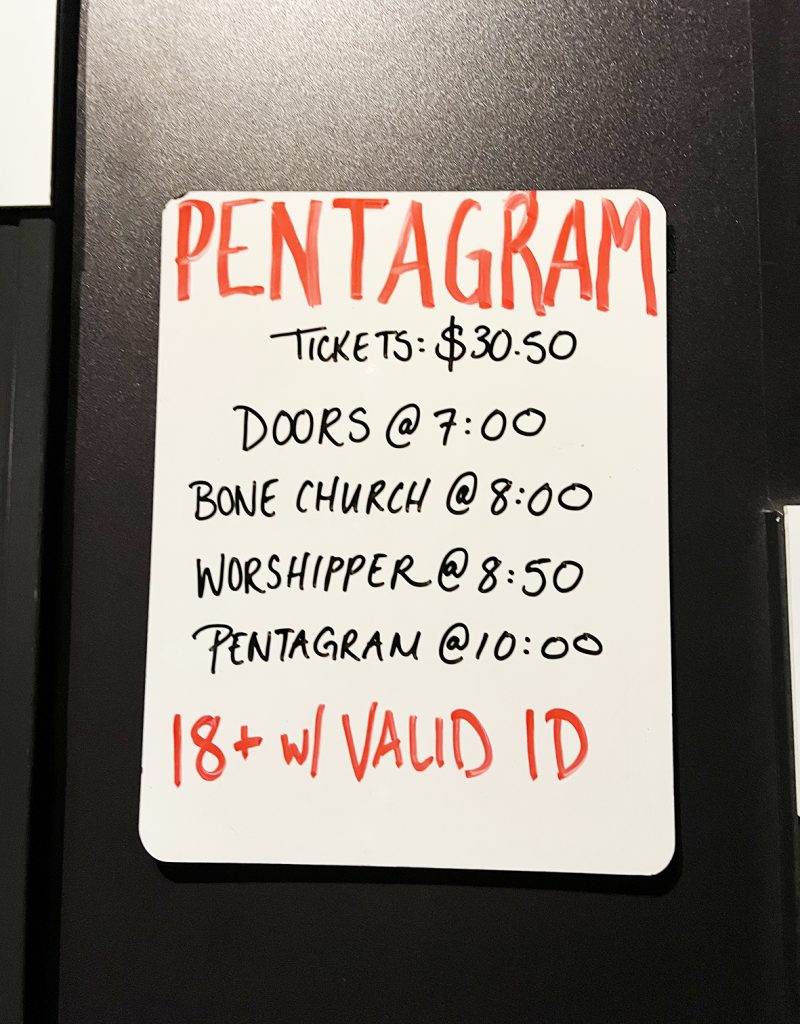 PENTAGRAM
TICKETS: $30.50
DOORS @ 7:00
BONE CHURCH @ 8:00
WORSHIPPER @ 8:50
PENTAGRAM @ 10:00
18+ w/ VALID ID